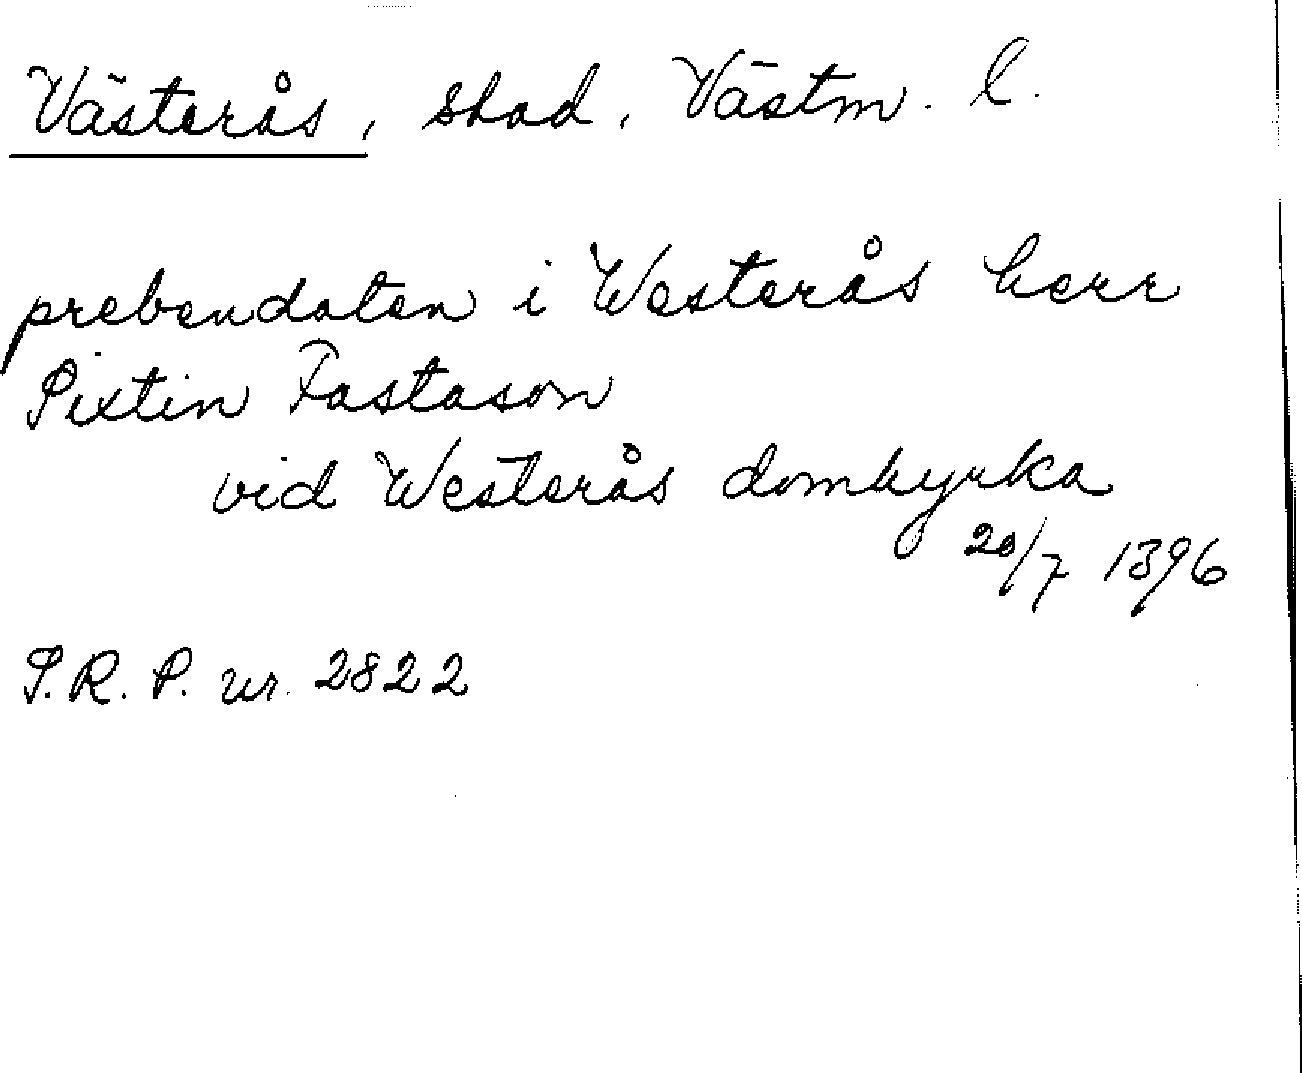 Västerås, stad, Västm. l.
prebendaten i Westerås herr
Sixtin Fastason
vid Westerås domkyrka
20/7 1396
S.R.P. nr. 2822